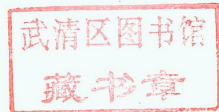 武清区图书馆
藏书章